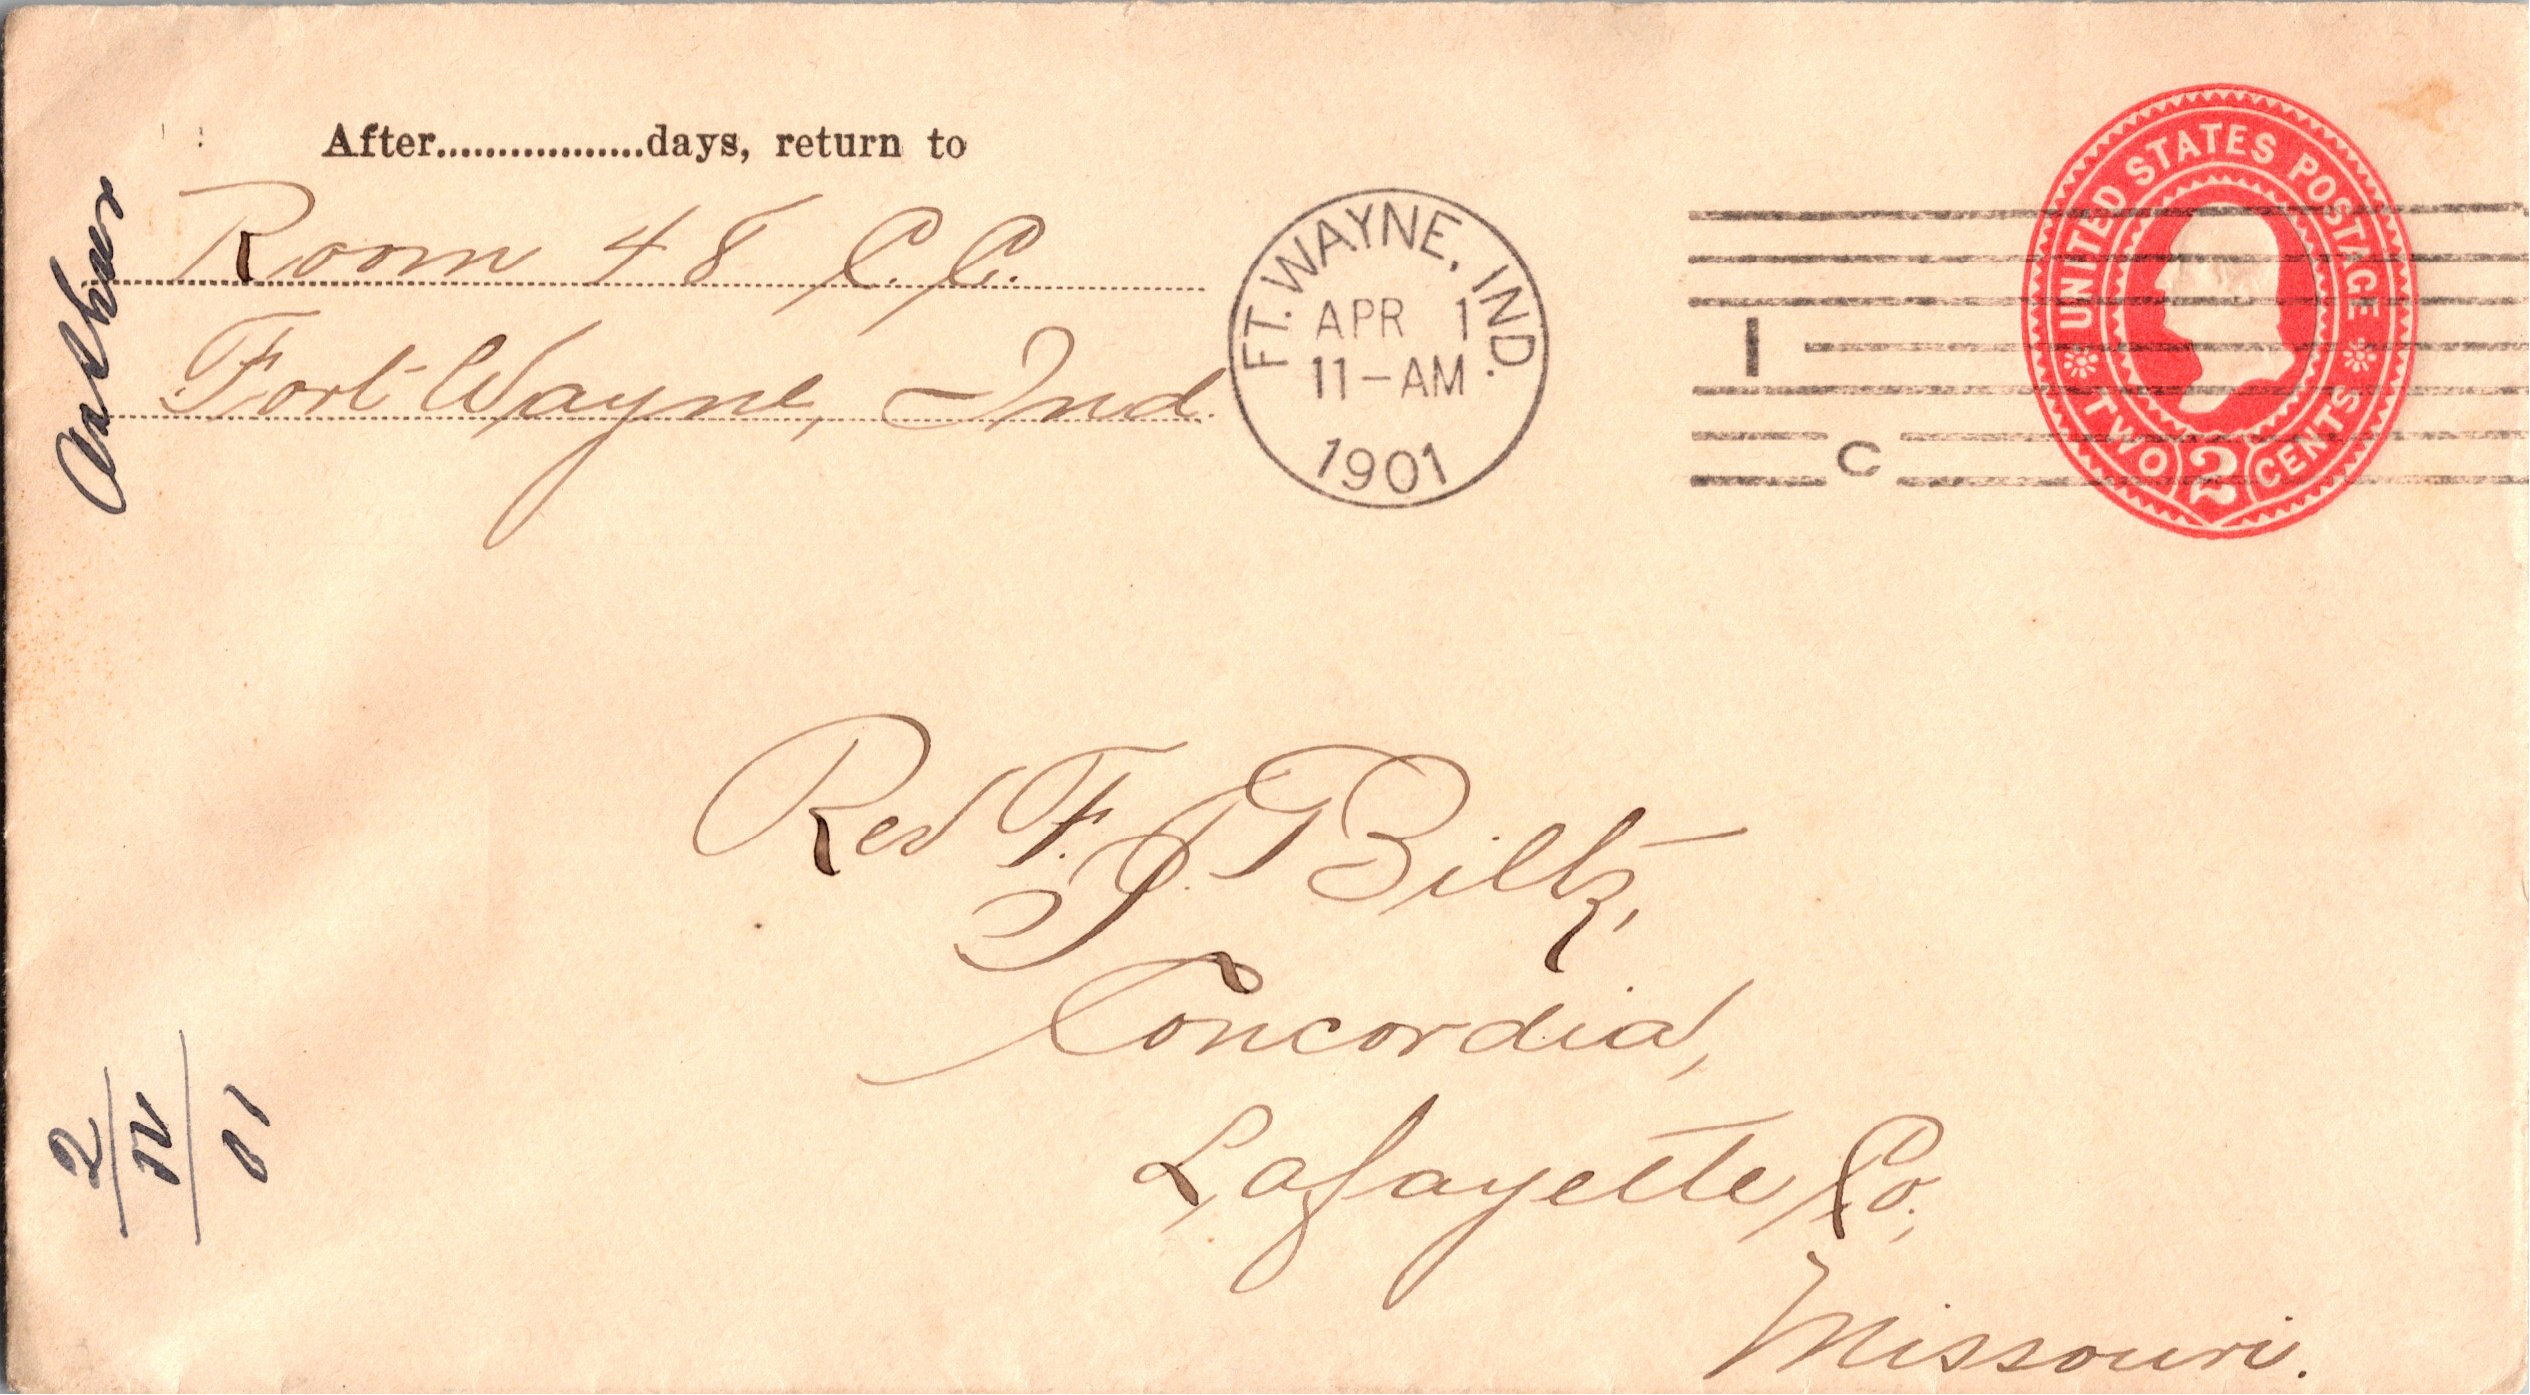 After..................days, return to
Room 48 C. C.
Fort Wayne, Ind.
Arthur
FT. WAYNE, IND.
APR 1
11-AM
1901
1
C
UNITED STATES POSTAGE
TWO 2 CENTS
Rev F. J. Biltz,
Concordia,
Lafayette Co.,
Missouri.
2/IV 01